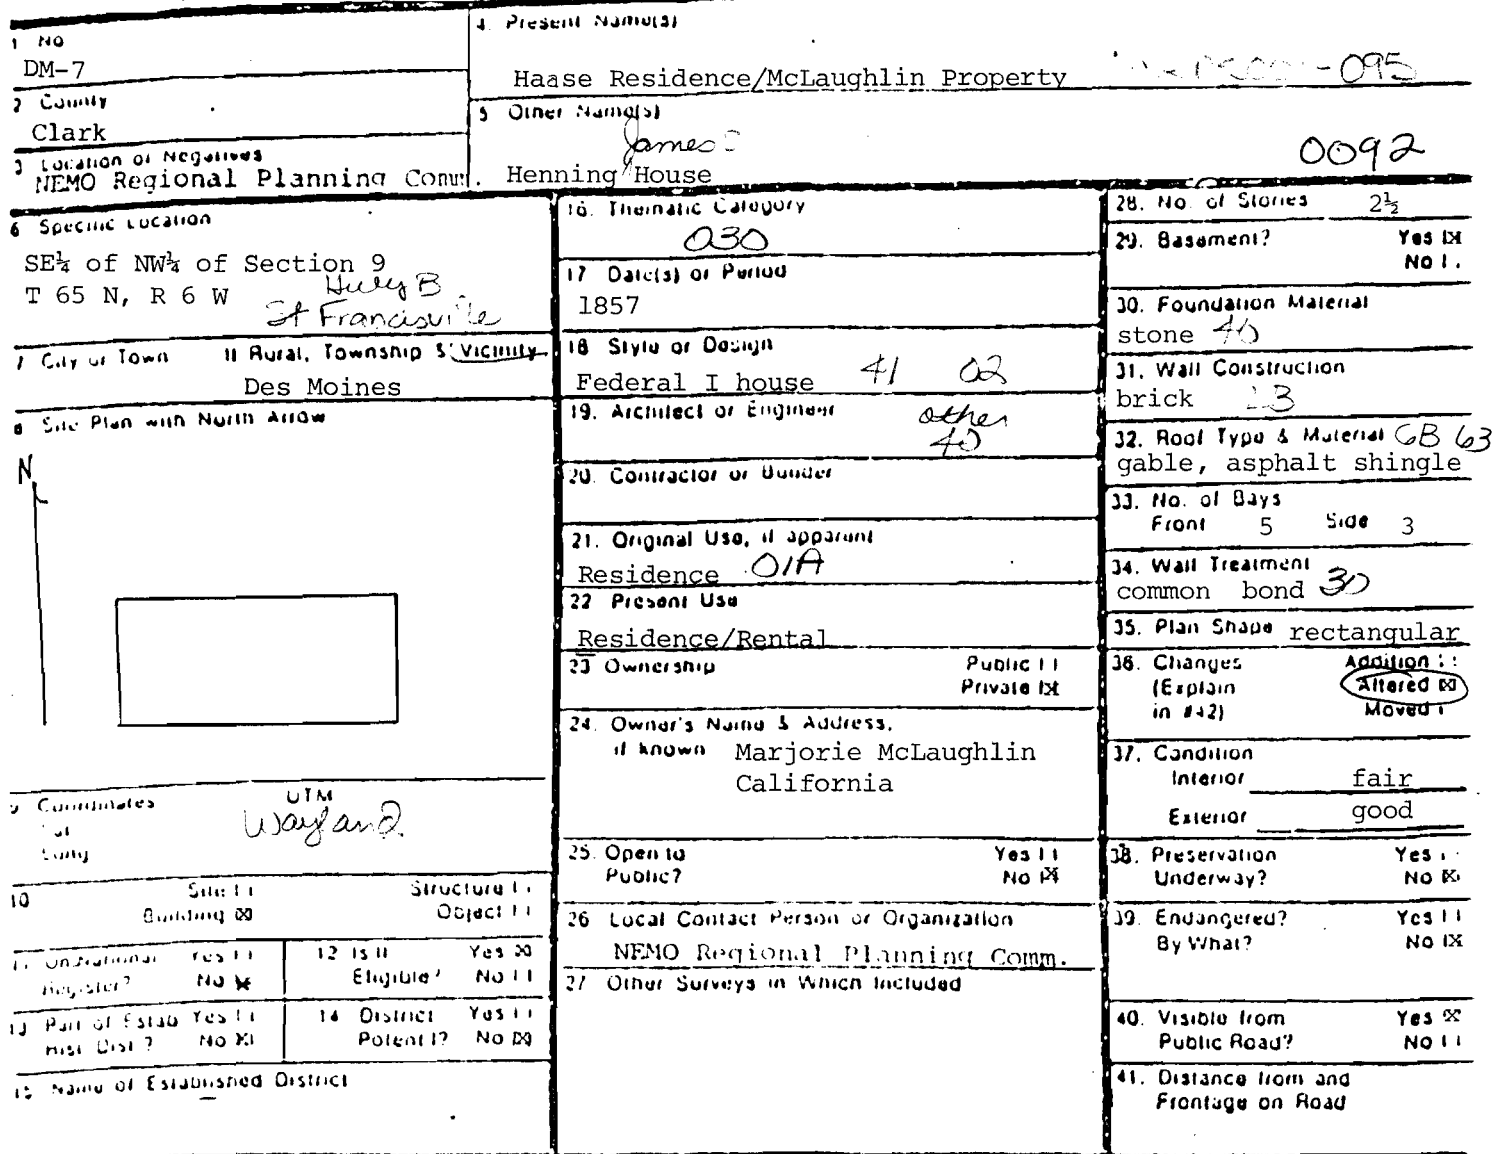 1 No
DM-7
2 County
Clark
3 Location of Negatives
NEMO Regional Planning Comm.
4. Present Name(s)
Haase Residence/McLaughlin Property
-095
5 Other Name(s)
James
Henning House
0092
6 Specific Location
SE¼ of NW¼ of Section 9
T 65 N, R 6 W
St Francisville
7 City or Town If Rural, Township & Vicinity
Des Moines
8 Site Plan with North Arrow
N
9 Coordinates UTM
Lat
Long
Wayland
10 Site Structure
Building ☒ Object
11 On National Register? Yes No ☒
12 Is it Eligible? Yes ☒ No
13 Part of Estab Hist. Dist.? Yes No ☒
14 District Potent'l? Yes No ☒
15 Name of Established District
16. Thematic Category
030
17 Date(s) or Period
1857
18 Style or Design
Federal I house 41 02
19. Architect or Engineer
other
40
20. Contractor or Builder
21. Original Use, if apparent
Residence 01A
22 Present Use
Residence/Rental
23 Ownership Public
Private ☒
24. Owner's Name & Address,
if known Marjorie McLaughlin
California
25. Open to Public? Yes
No ☒
26 Local Contact Person or Organization
NEMO Regional Planning Comm.
27 Other Surveys in Which Included
28. No. of Stories 2½
29. Basement? Yes ☒
No
30. Foundation Material
stone 40
31. Wall Construction
brick
32. Roof Type & Material GB 63
gable, asphalt shingle
33. No. of Bays
Front 5 Side 3
34. Wall Treatment
common bond 30
35. Plan Shape rectangular
36. Changes Addition
(Explain Altered ☒
in #42) Moved
37. Condition
Interior fair
Exterior good
38. Preservation Yes
Underway? No ☒
39. Endangered? Yes
By What? No ☒
40. Visible from Yes ☒
Public Road? No
41. Distance from and
Frontage on Road